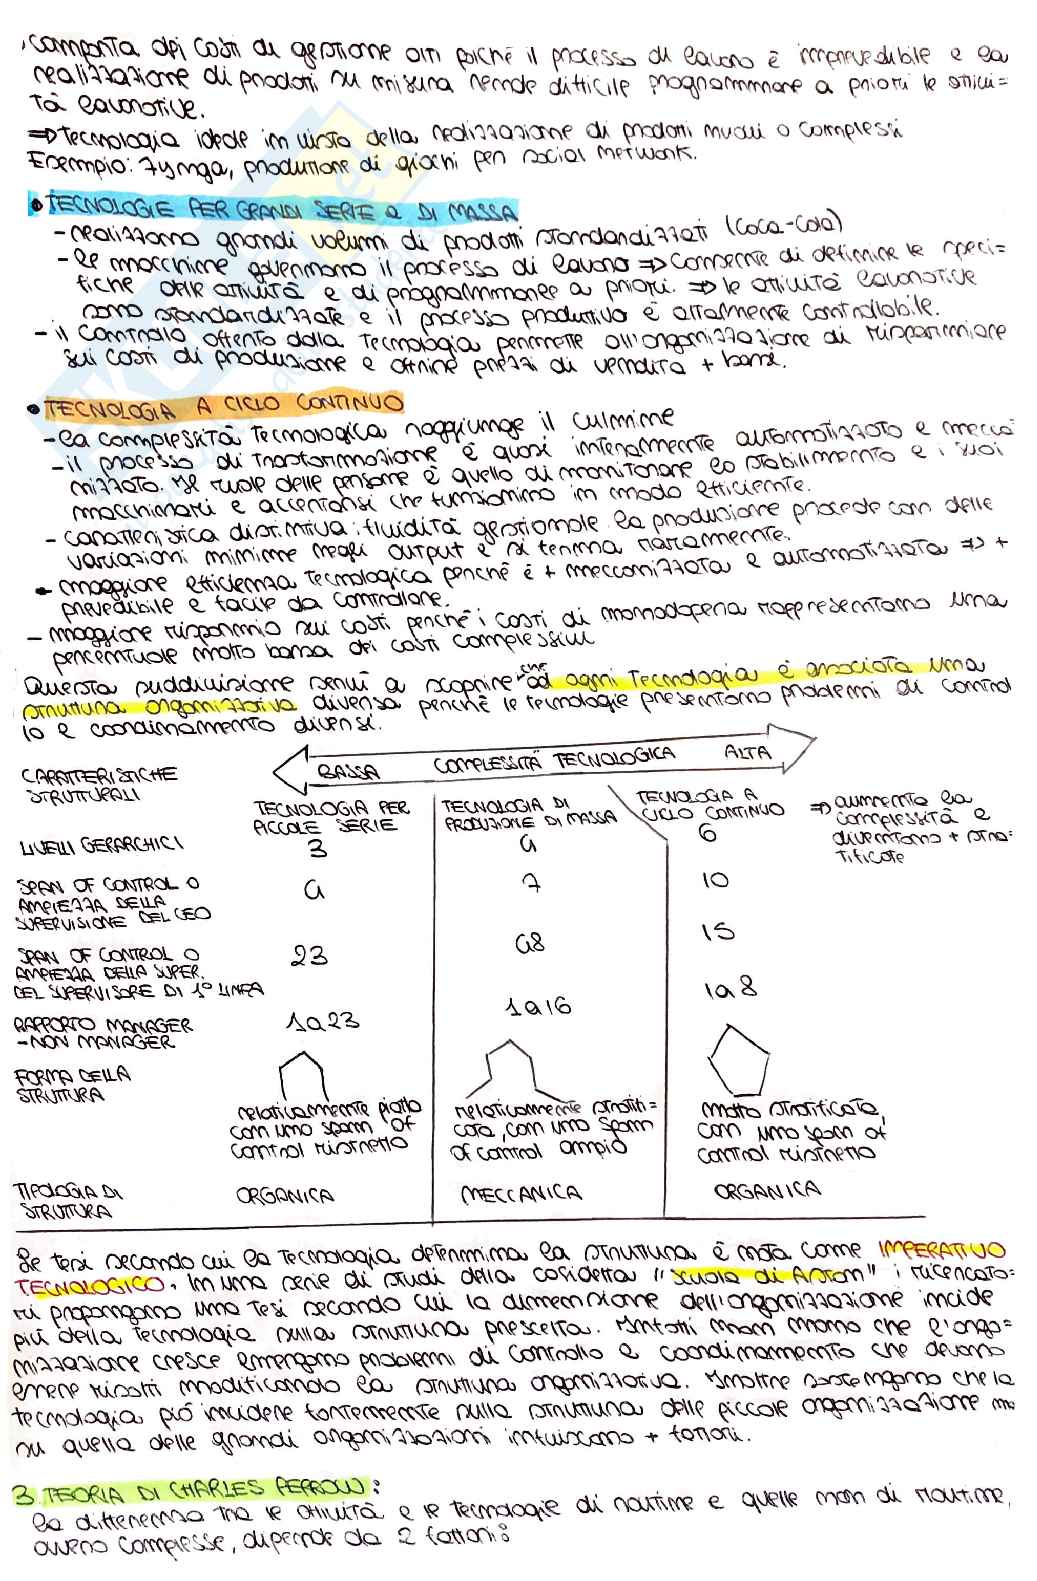 comporta dei costi di gestione alti poiché il processo di lavoro è imprevedibile e la
realizzazione di prodotti su misura rende difficile programmare a priori le attivi=
tà lavorative.
⇒ Tecnologia ideale in vista della realizzazione di prodotti nuovi o complessi
Esempio: Zynga, produzione di giochi per social network.
• TECNOLOGIE PER GRANDI SERIE e DI MASSA
- realizzano grandi volumi di prodotti standardizzati (Coca-Cola)
- Le macchine governano il processo di lavoro ⇒ Consente di definire le speci=
fiche delle attività e di programmare a priori. ⇒ le attività lavorative
sono standardizzate e il processo produttivo è altamente controllabile.
- il controllo offerto dalla tecnologia permette all'organizzazione di risparmiare
sui costi di produzione e offrire prezzi di vendita + bassi.
• TECNOLOGIA A CICLO CONTINUO
- la complessità tecnologica raggiunge il culmine
- il processo di trasformazione è quasi interamente automatizzato e mecca
nizzato. Il ruolo delle persone è quello di monitorare lo stabilimento e i suoi
macchinari e accertarsi che funzionino in modo efficiente.
- caratteristica distintiva: fluidità gestionale. la produzione procede con delle
variazioni minime negli output e si ferma raramente.
- maggiore efficienza tecnologica perché è + meccanizzata e automatizzata ⇒ +
prevedibile e facile da controllare.
- maggiore risparmio sui costi perché i costi di manodopera rappresentano una
percentuale molto bassa dei costi complessivi
Questa suddivisione servì a scoprire che ad ogni tecnologia è associata una
struttura organizzativa diversa perché le tecnologie presentano problemi di control
lo e coordinamento diversi.
CARATTERISTICHE STRUTTURALI
BASSA COMPLESSITÀ TECNOLOGICA ALTA
TECNOLOGIA PER PICCOLE SERIE
TECNOLOGIA DI PRODUZIONE DI MASSA
TECNOLOGIA A CICLO CONTINUO
⇒ aumenta la
complessità e
diventano + stra=
tificate
LIVELLI GERARCHICI 3 4 6
SPAN OF CONTROL O
AMPIEZZA DELLA
SUPERVISIONE DEL CEO
4 7 10
SPAN OF CONTROL O
AMPIEZZA DELLA SUPER.
DEL SUPERVISORE DI 1° LINEA
23 48 15
RAPPORTO MANAGER
-NON MANAGER
1 a 23 1 a 16 1 a 8
FORMA DELLA
STRUTTURA
relativamente piatta
con uno span of
control ristretto
relativamente stratifi=
cata, con uno span
of control ampio
molto stratificata,
con uno span of
control ristretto
TIPOLOGIA DI
STRUTTURA
ORGANICA MECCANICA ORGANICA
La tesi secondo cui la tecnologia determina la struttura è nota come IMPERATIVO
TECNOLOGICO. In una serie di studi della cosidetta "scuola di Aston" i ricercato=
ri propongono una tesi secondo cui la dimensione dell'organizzazione incide
più della tecnologia sulla struttura prescelta. Infatti man mano che l'orga=
nizzazione cresce emergono problemi di controllo e coordinamento che devono
essere risolti modificando la struttura organizzativa. Inoltre sostengono che la
tecnologia può incidere fortemente sulla struttura delle piccole organizzazione ma
su quella delle grandi organizzazioni influiscono + fattori.
3. TEORIA DI CHARLES PERROW:
la differenza tra le attività e le tecnologie di routine e quelle non di routine,
ovvero complesse, dipende da 2 fattori: